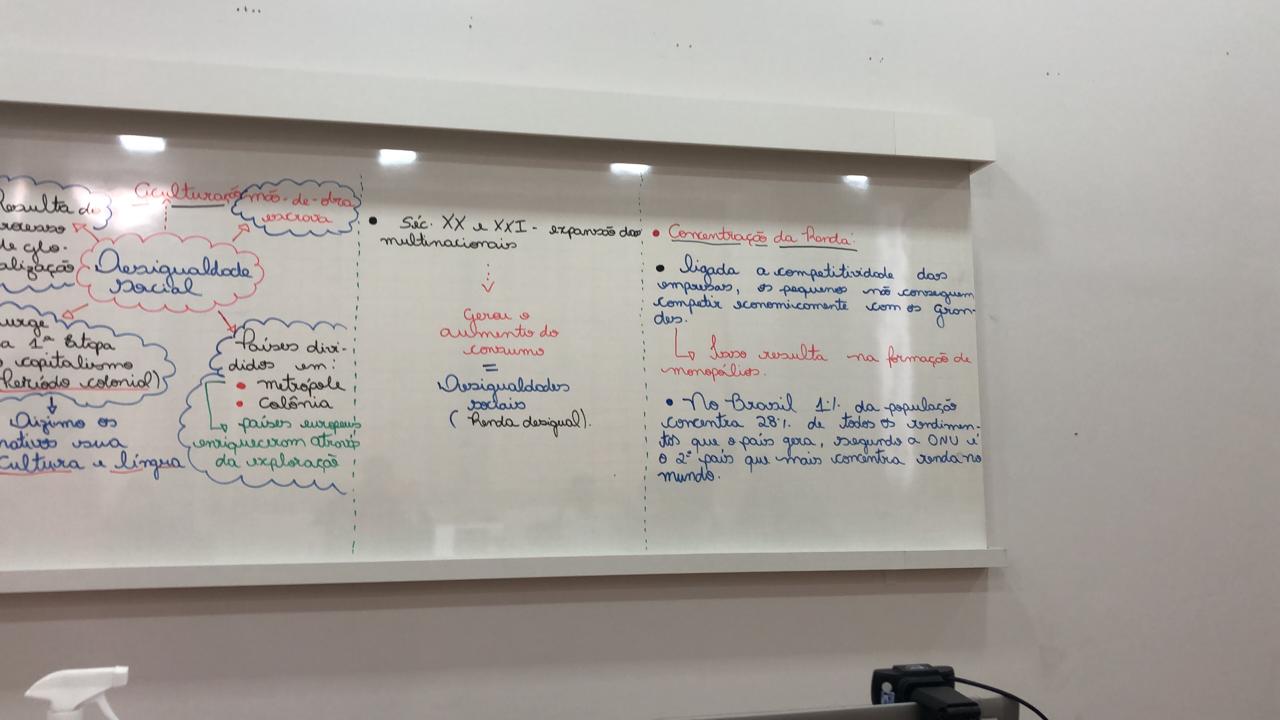 Resulta do
processo
de glo-
alização
Aculturação
mão-de-obra
escrava
Desigualdade
social
urge
a 1ª Etapa
o capitalismo
Período colonial)
Dizimo os
nativos sua
cultura e língua
Países divi-
didos em:
• metrópole
• colônia
países europeus
enriqueceram através
da exploração
• Séc. XX e XXI - expansão das
multinacionais
Gerou o
aumento do
consumo
=
Desigualdades
sociais
(Renda desigual).
• Concentração da Renda:
• ligada a competitividade das
empresas, os pequenos não conseguem
competir economicamente com os gran-
des.
Isso resulta na formação de
monopólios.
• No Brasil 1% da população
concentra 28% de todos os rendimen-
tos que o país gera, segundo a ONU é
o 2º país que mais concentra renda no
mundo.